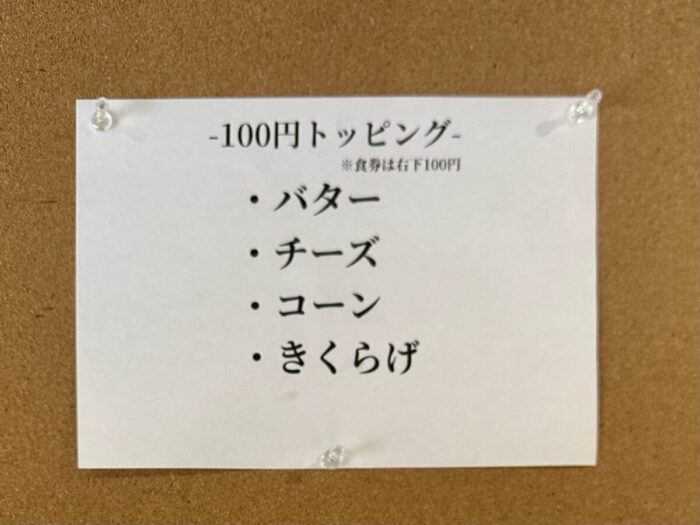 -100円トッピング-
※食券は右下100円
・バター
・チーズ
・コーン
・きくらげ